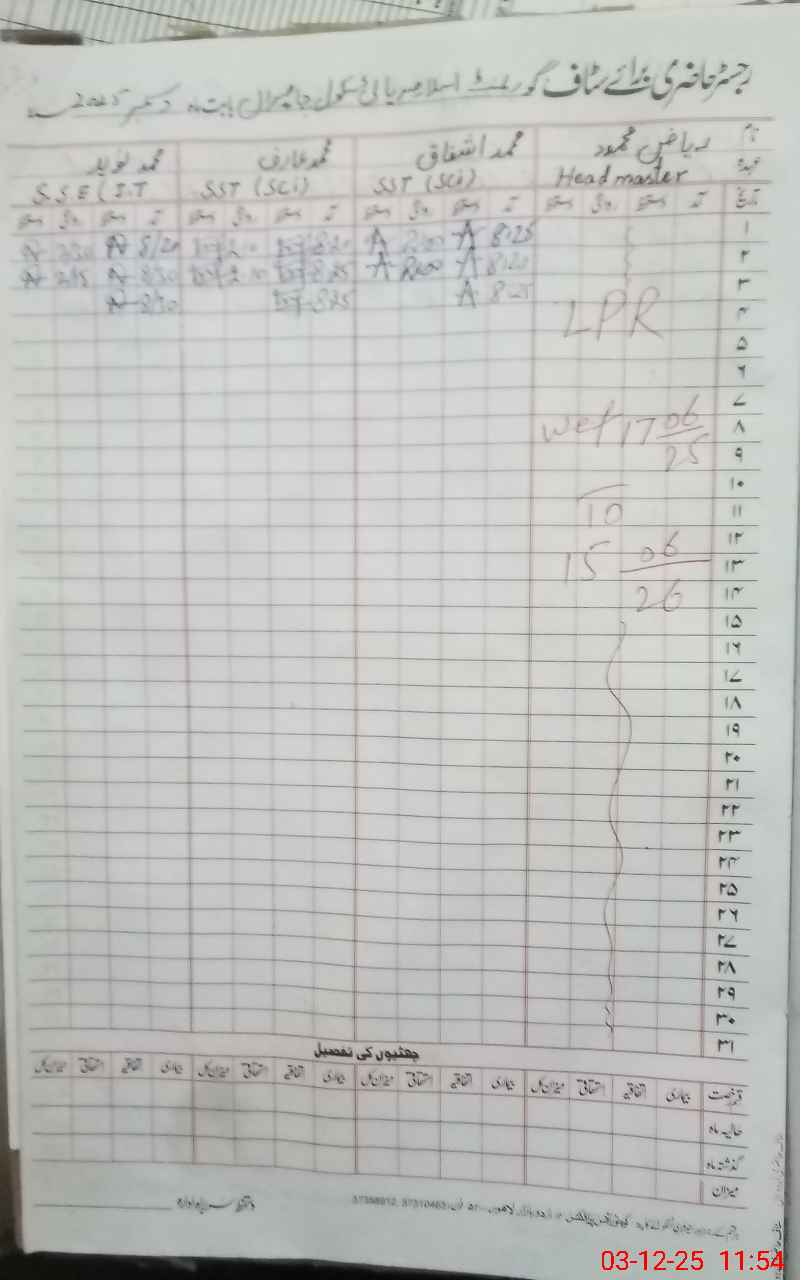 رجسٹر حاضری برائے سٹاف گورنمنٹ اسلامیہ ہائی سکول بابت ماہ دسمبر 2025ء
نام ریاض محمود محمد اشفاق محمد عارف محمد نوید
عہدہ Headmaster SST (Sci) SST (Sci) S.S.E (I.T
تاریخ آمد دستخط روانگی دستخط آمد دستخط روانگی دستخط آمد دستخط روانگی دستخط آمد دستخط روانگی دستخط
۱ 8:25 A 2:00 A 8:20 2:0 8/20 2:30
۲ 8:20 A 2:00 A 8:25 2:10 8:30 2:15
۳ 8:25 A 8:25 8:30
۴ LPR
۵
۶
۷
۸ wef 17 06/25
۹
۱۰
۱۱ To
۱۲
۱۳ 15 06/26
۱۴
۱۵
۱۶
۱۷
۱۸
۱۹
۲۰
۲۱
۲۲
۲۳
۲۴
۲۵
۲۶
۲۷
۲۸
۲۹
۳۰
۳۱
چھٹیوں کی تفصیل
قسم رخصت بیماری اتفاقیہ استحقاقی میزان کل بیماری اتفاقیہ استحقاقی میزان کل بیماری اتفاقیہ استحقاقی میزان کل بیماری اتفاقیہ استحقاقی میزان کل
حالیہ ماہ
گذشتہ ماہ
میزان
دستخط سربراہ ادارہ
03-12-25 11:54